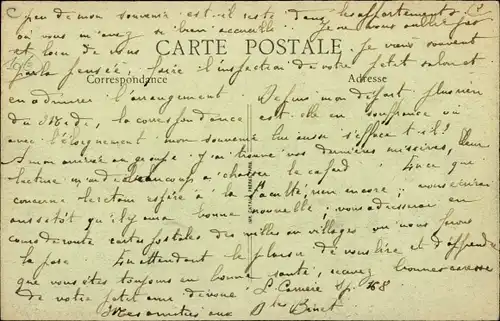 peu de mon souvenir est-il resté dans les appartements
où vous m'avez si bien accueilli? Je ne vous oublie pas
et loin de vous je vais souvent
CARTE POSTALE
par la pensée, faire l'inspection de votre petit salon et
Correspondance Adresse
en admirer l'arrangement. Depuis mon départ plus rien
du Midi, la correspondance est-elle en souffrance où
avec l'éloignement mon souvenir lui aussi s'efface-t-il?
A mon arrivée au groupe j'ai trouvé vos dernières missives, leur
lecture m'aide beaucoup à chasser le cafard. En ce que
concerne le retour espéré à la Faculté rien encore; vous écrirai
aussitôt qu'il y aura bonne nouvelle; vous adresserai en
cours de route cartes postales des villes ou villages où nous ferons
la pose. En attendant le plaisir de vous lire et d'apprendre
que vous êtes toujours en bonne santé, recevez bonnes caresses
de votre petit ami dévoué. L. 68
Mes amitiés aux Binet